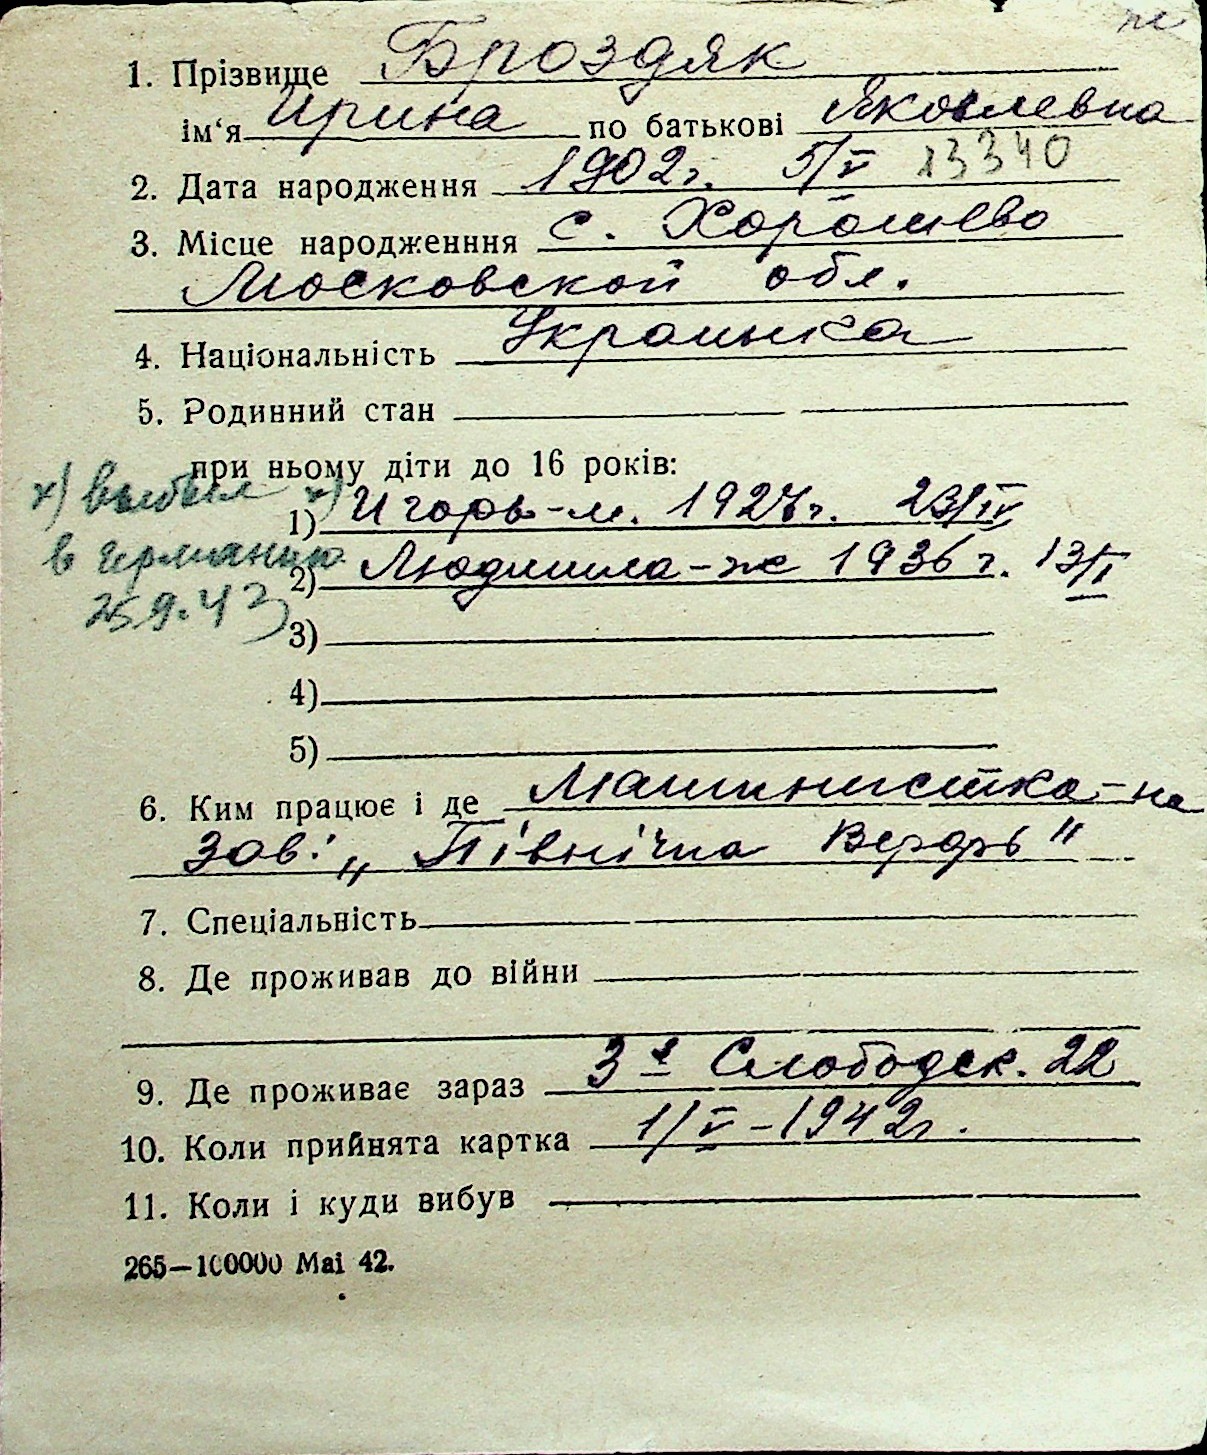 1. ПрізвищеБроздяк
ім‘я Ирина по батькові Яковлевна
2. Дата народження 1902г. 5/V 13340
3. Місце народженння с. Хорошево
Московской обл.
4. Національність Украинка
5. Родинний стан
при ньому діти до 16 років:
х) выбыл х)
1) Игорь-м. 1927г. 23/IV
в Германию
2) Людмила-ж 1936г. 13/I
25.9.43
3)
4)
5)
6. Ким працює і де Машинистка-на
зав: „Північна Верфь"
7. Спеціальність
8. Де проживав до війни
9. Де проживає зараз 3я Слободск. 22
10. Коли прийнята картка 1/V-1942г.
11. Коли і куди вибув
265—100000 Mai 42.